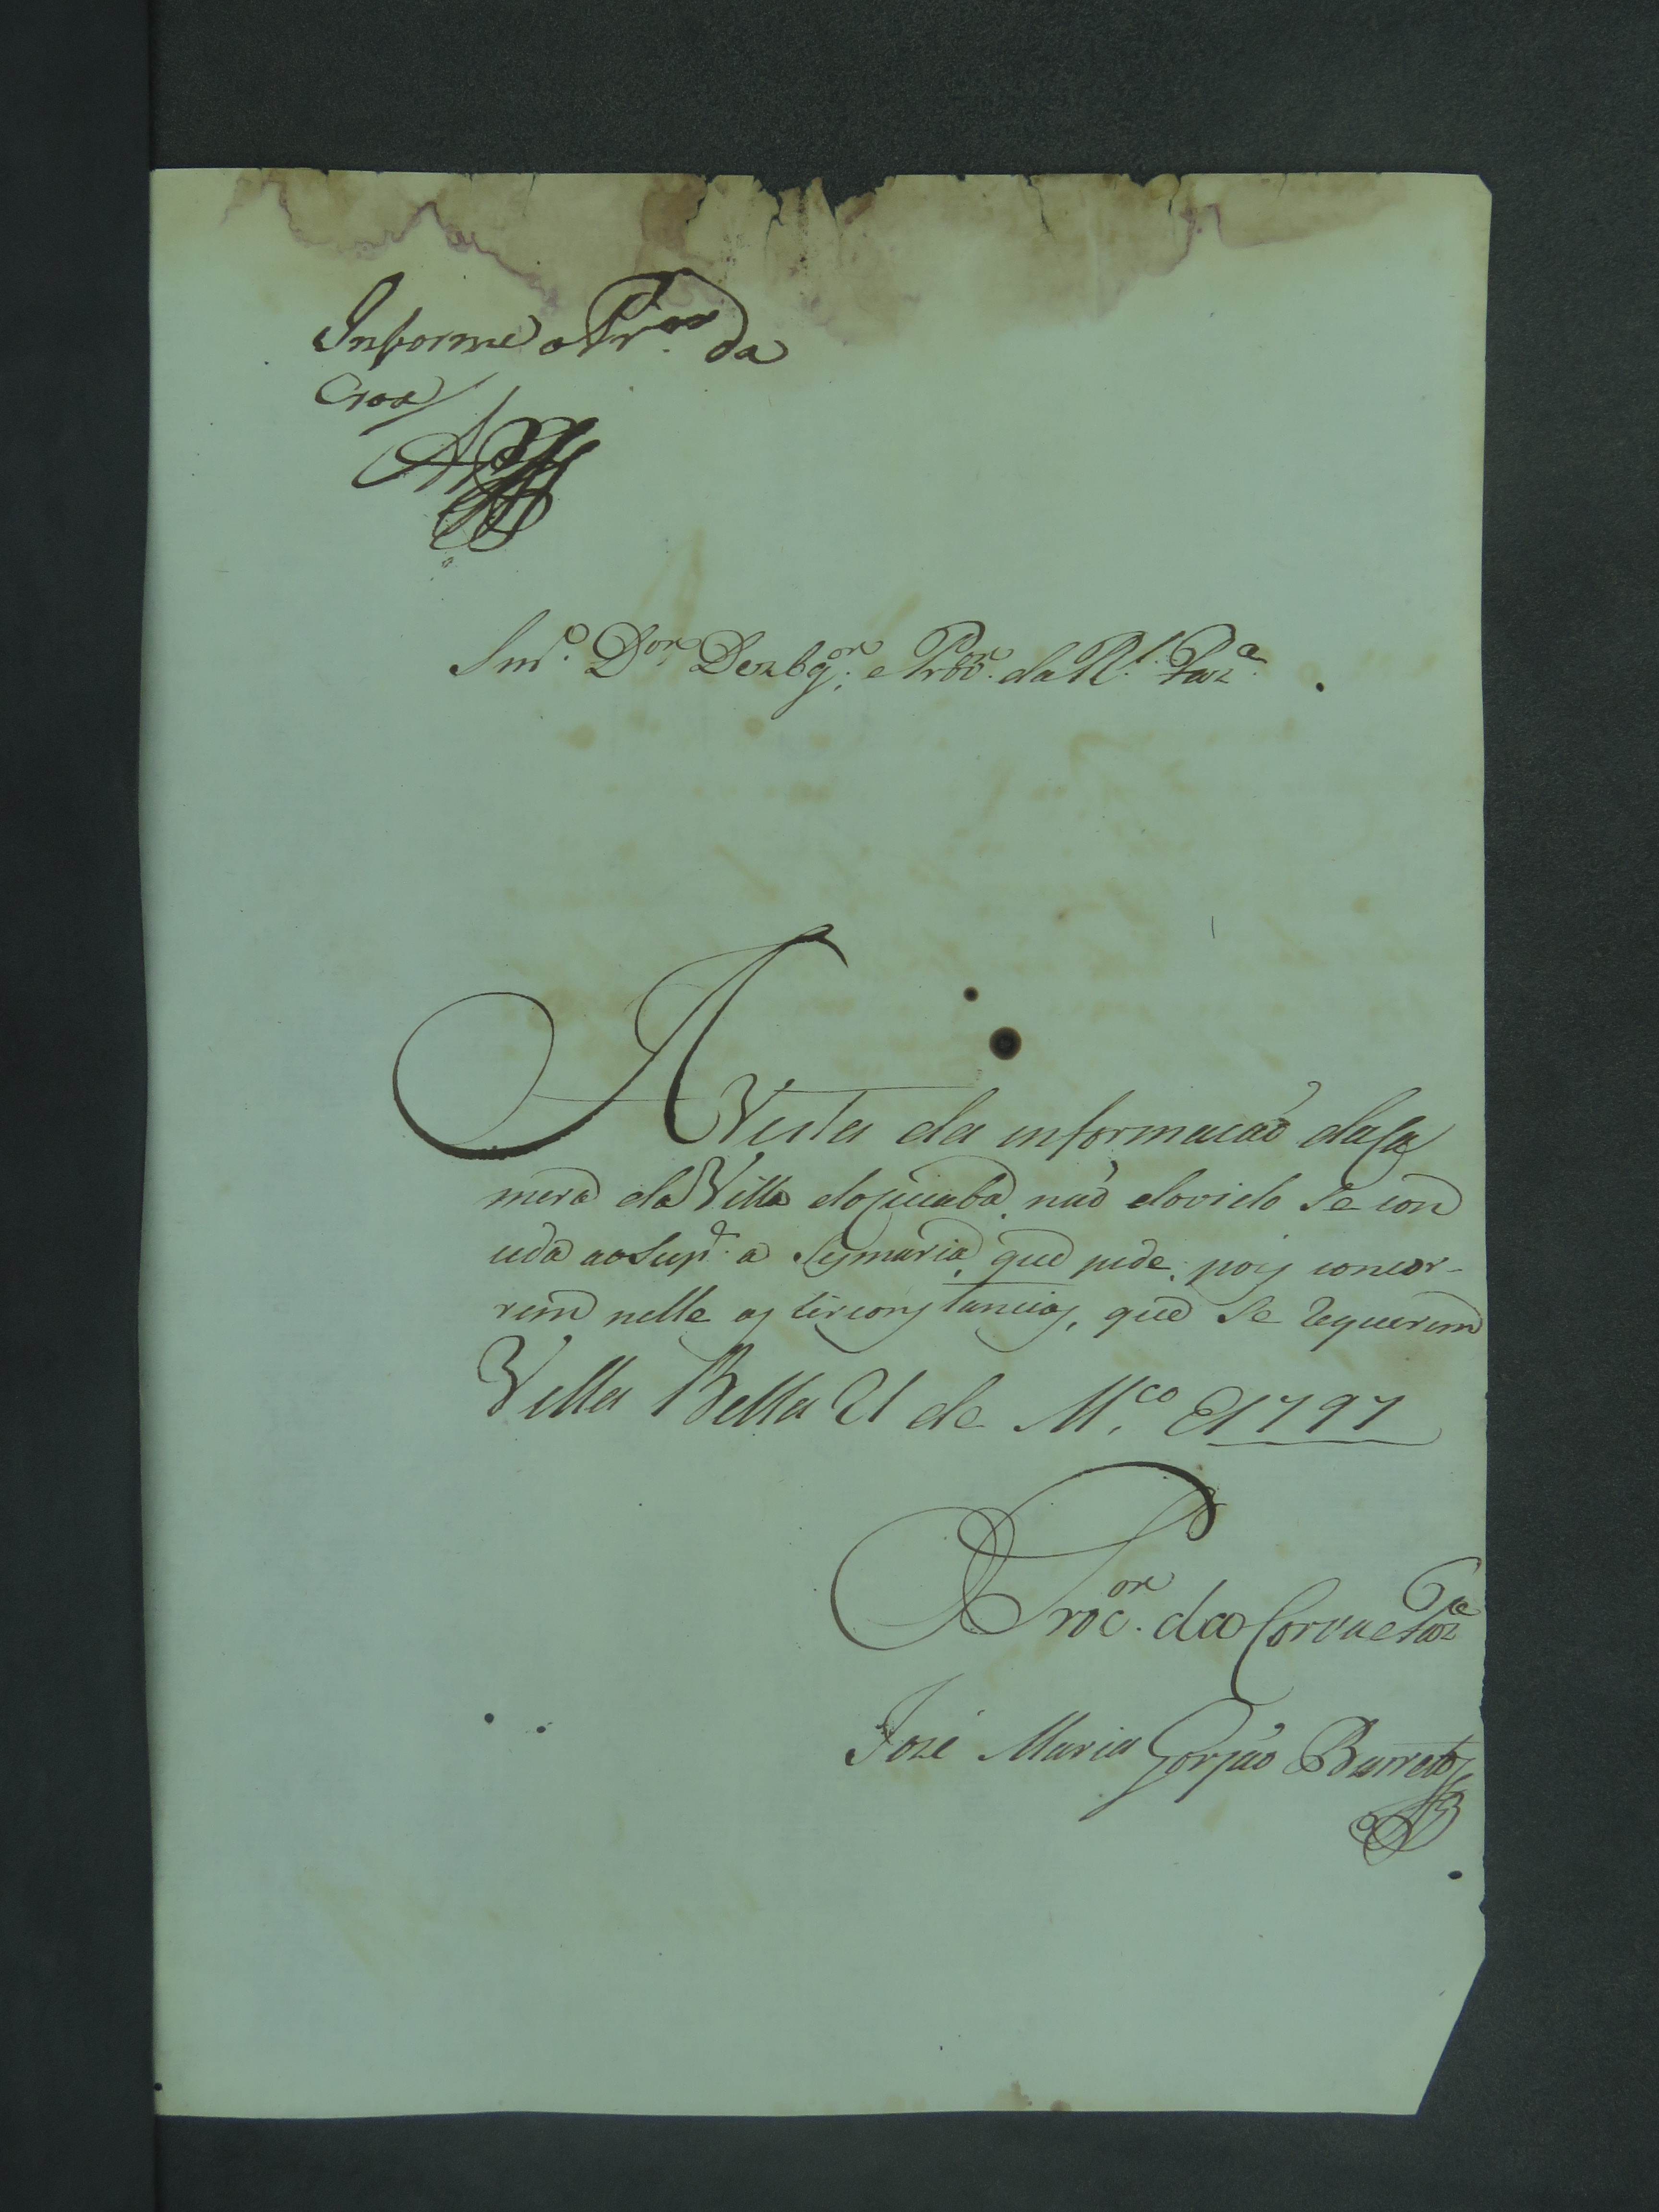 Informe o Pr.or da
Croa
Snr.o D.or Dezbg.or e Prov.or da R.l Faz.a
A Vista da informacaõ da Ca
mera da Villa do Cuiabá, naõ dovido se con
ceda ao Sup.e a Sysmaria, que pede, poiz concor-
rem nelle as circonstancias, que se requerem
Villa Bella 21 de M.co d 1797
Proc.or da Coroa e Faz.a
Jozé Maria Gorjaõ Barreto